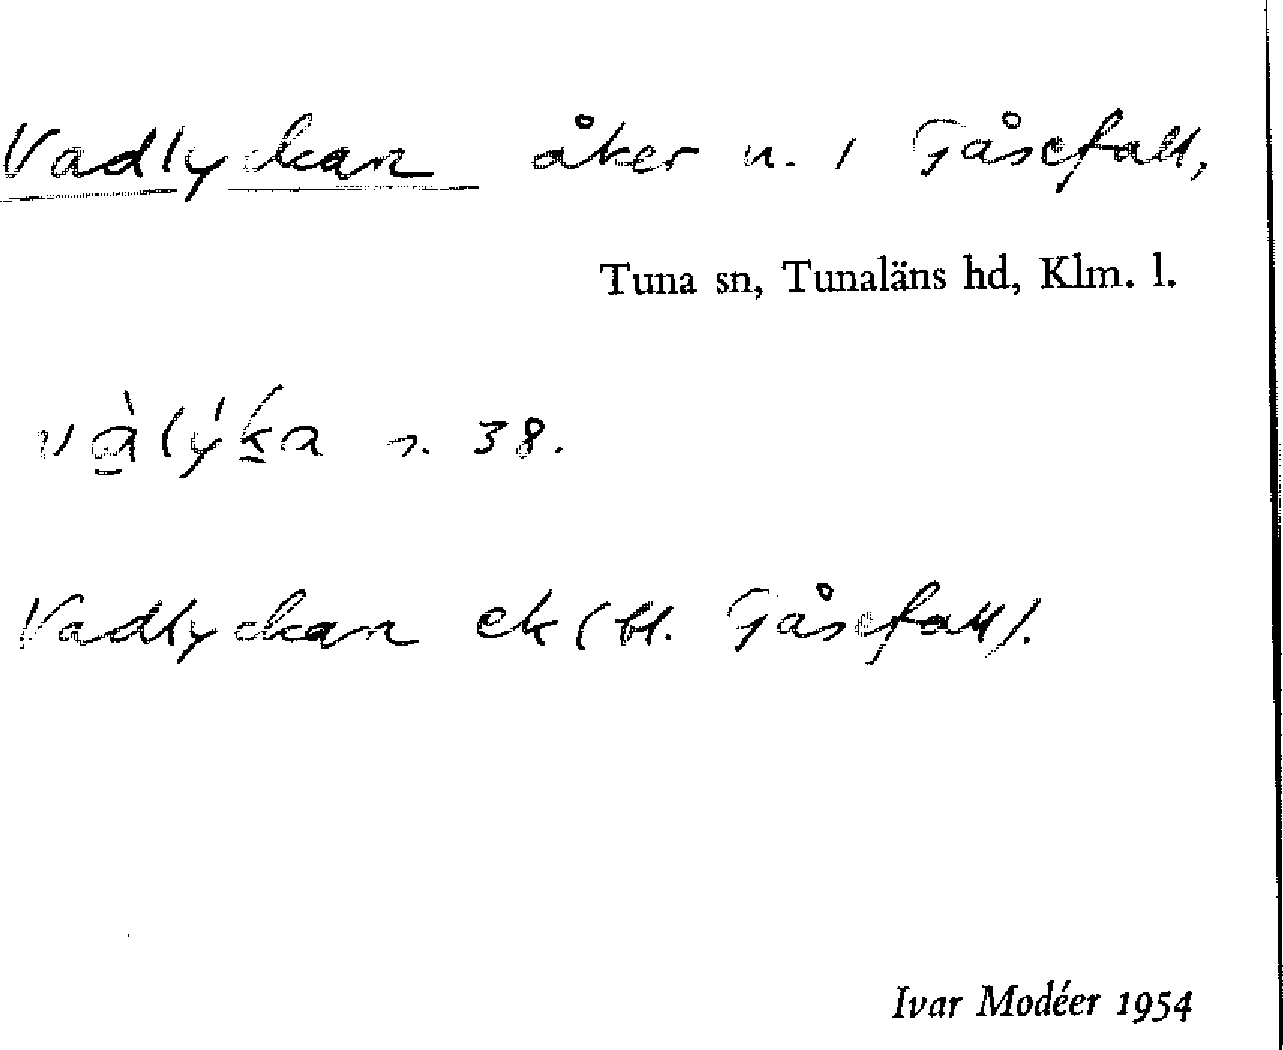 Vadlyckan åker n. i Gåsefall,
Tuna sn, Tunaläns hd, Klm. l.
và̱lýḵa s. 38.
Vadlyckan ek (bl. Gåsefall).
Ivar Modéer 1954